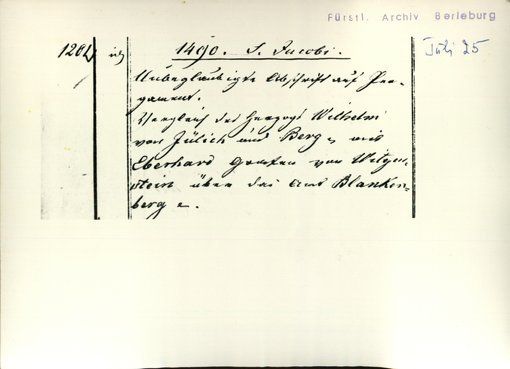 Fürstl. Archiv Berleburg
1204 id 1490. S. Jacobi. Juli 25
Unbeglaubigte Abschrift auf Per-
gament.
Vergleich des Herzogs Wilhelm
von Jülich und Berg mit
Eberhard Grafen von Witgen-
stein über das Amt Blanken-
berg